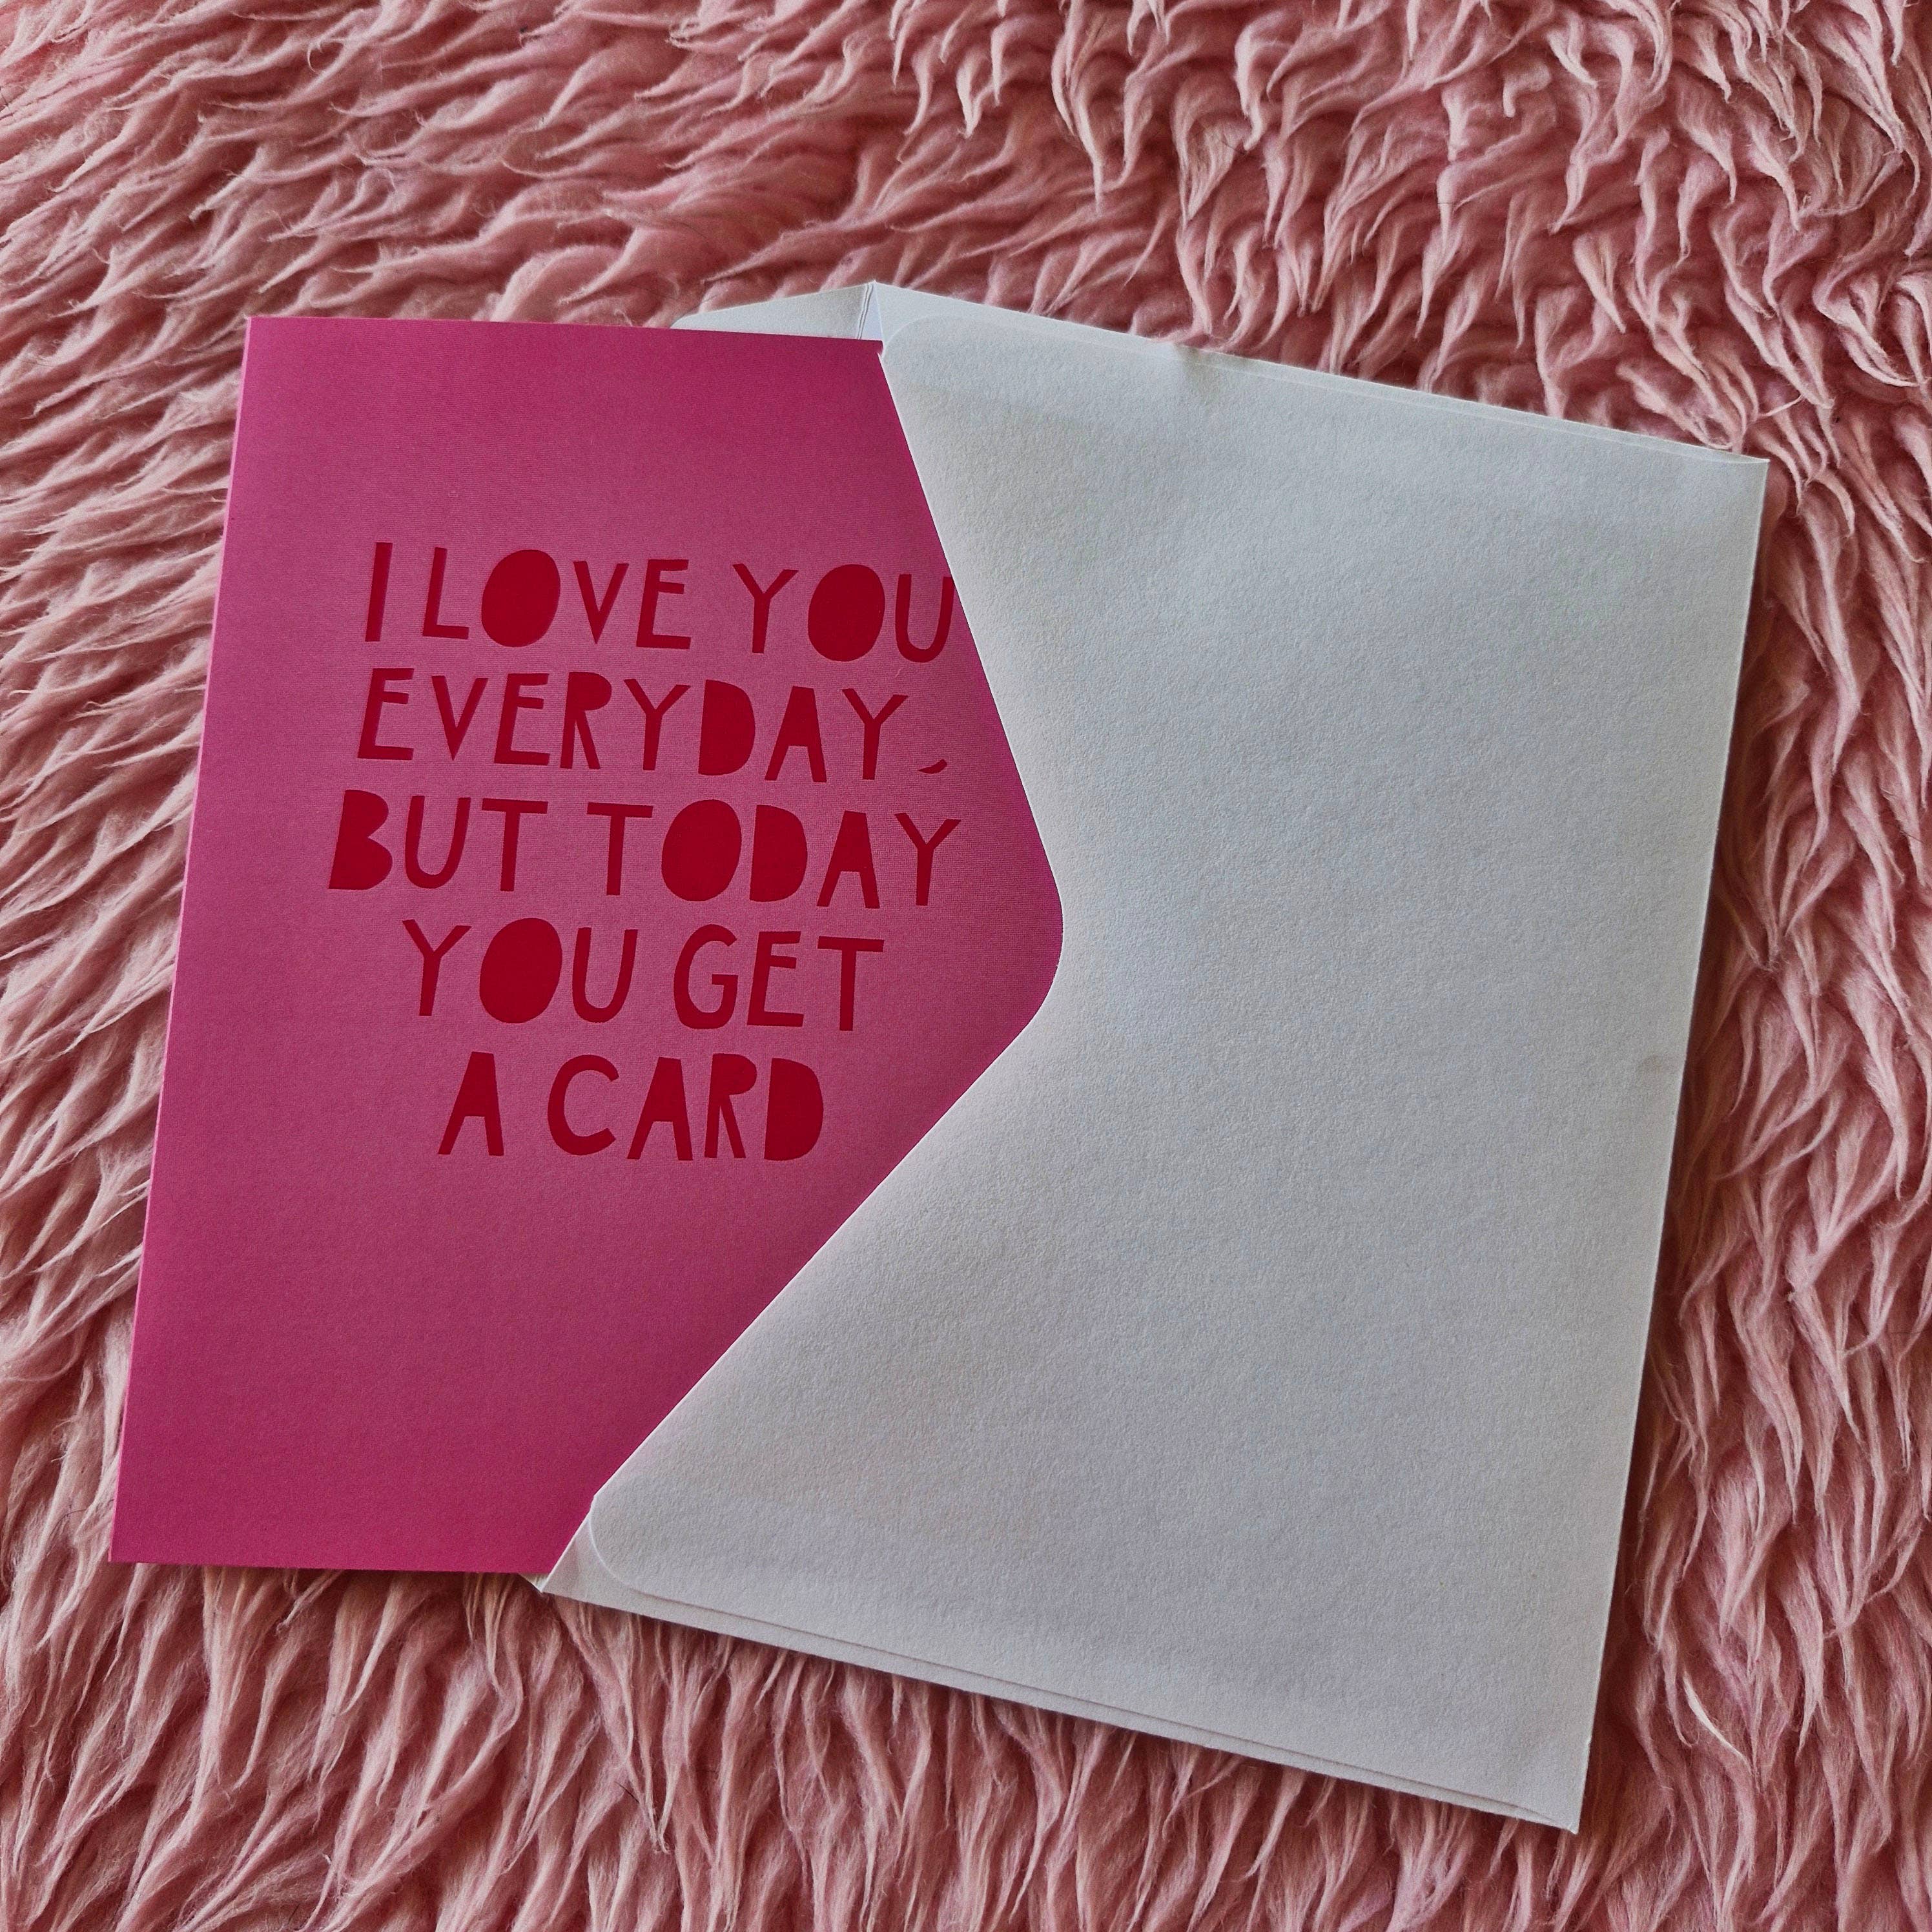 I LOVE YOU
EVERYDAY,
BUT TODAY
YOU GET
A CARD